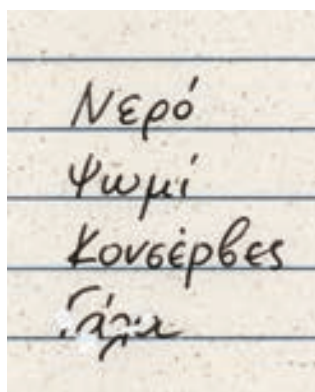 Νερό
Ψωμί
Κονσέρβες